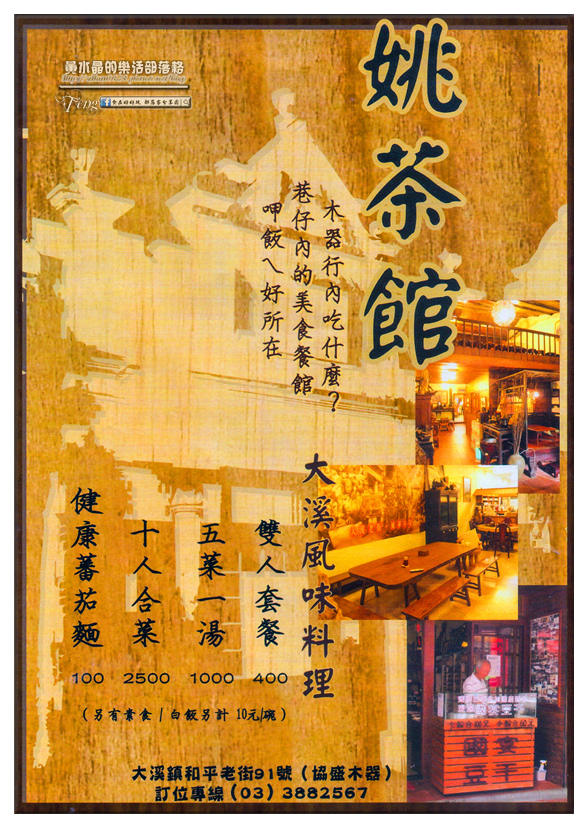 黃水晶的樂活部落格
Ting
食在好好玩 部落客分享團
姚茶館
木器行內吃什麼？
巷仔內的美食餐館
呷飯ㄟ好所在
大溪風味料理
雙人套餐 400
五菜一湯 1000
十人合菜 2500
健康蕃茄麵 100
（另有素食/白飯另計 10元/碗）
大溪鎮和平老街91號（協盛木器）
訂位專線（03）3882567